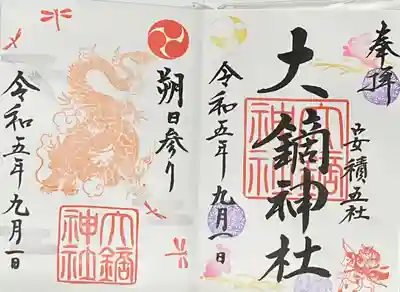 奉拝
安積五社
大鏑神社
令和五年九月一日
大鏑神社
朔日参り
令和五年九月一日
大鏑神社